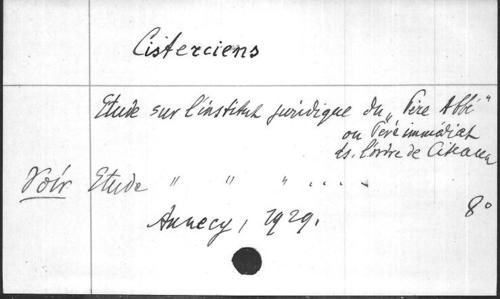 Cisterciens
Etude sur l'institut juridique du "Père Abbé"
ou Père immédiat
ds. l'ordre de Citeaux
Voir Etude " " " ....
Annecy, 1929.
8°